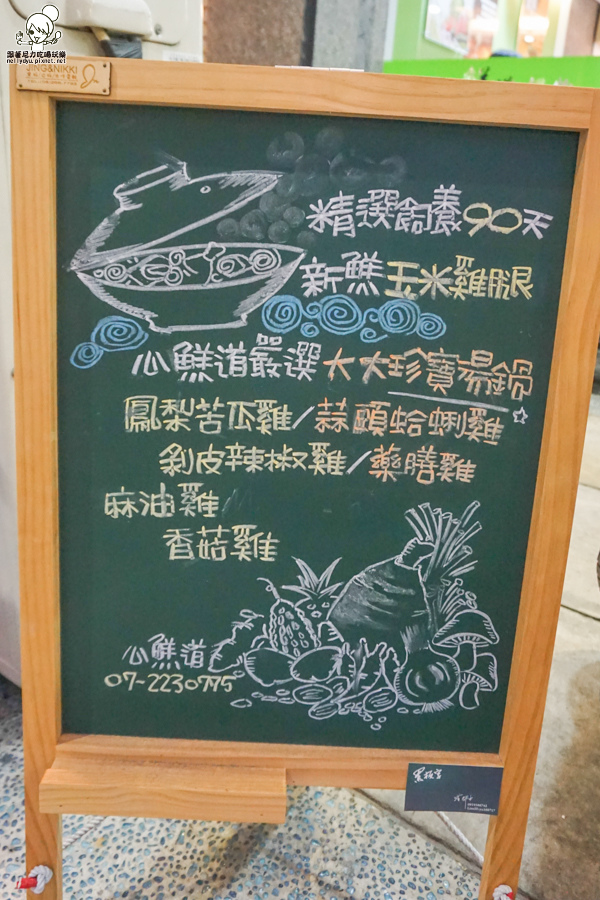 跟著尼力吃喝玩樂
nellydyu.pixnet.net
JING&NIKKI
精選飼養90天
新鮮玉米雞腿
心鮮道嚴選大大珍寶湯鍋
鳳梨苦瓜雞/蒜頭蛤蜊雞☆
剝皮辣椒雞/藥膳雞
麻油雞
香菇雞
心鮮道
07-2230775